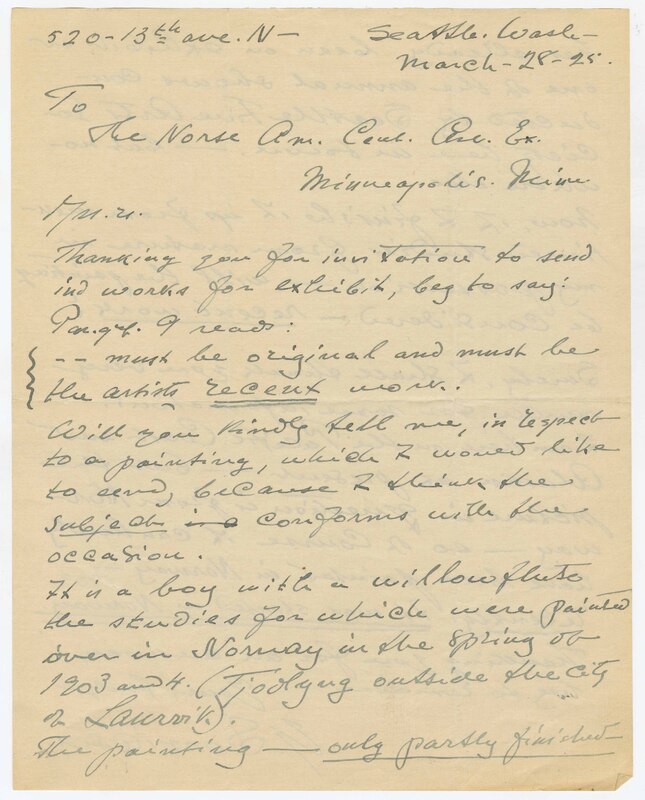 520-13th ave. N-
Seattle. Wash-
March-28-25.
To
The Norse Am. Cent. Art. Ex.
Minneapolis. Minn
Thanking you for invitation to send
ind works for exhibit, beg to say:
Par.gf. 9 reads:
-- must be original and must be
the artists recent work.
Will you kindly tell me, in respect
to a painting, which I would like
to send, because I think the
subject is a conforms with the
occasion.
It is a boy with a willowflute
the studies for which were painted
over in Norway in the spring of
1903 and 4. (Tjodlyng outside the city
of Laurvik).
The painting — only partly finished—